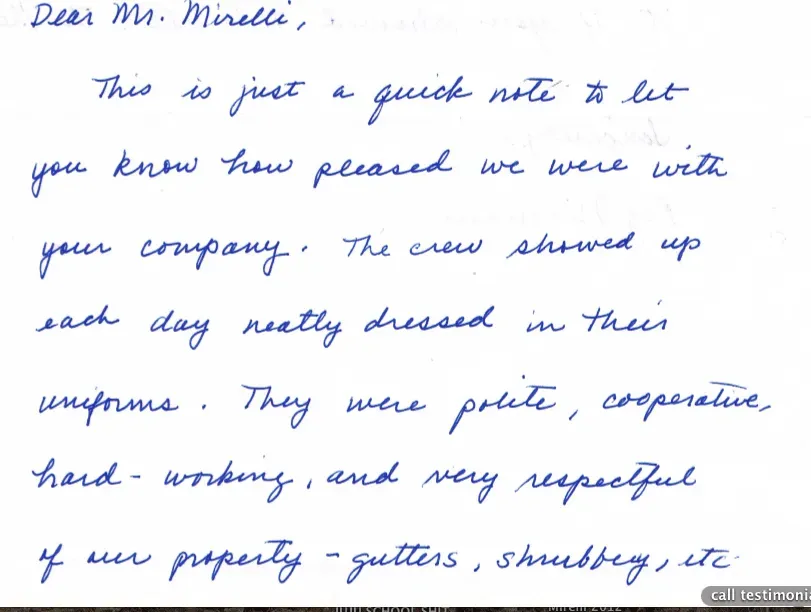 Dear Mr. Mirelli,
This is just a quick note to let
you know how pleased we were with
your company. The crew showed up
each day neatly dressed in their
uniforms. They were polite, cooperative,
hard-working, and very respectful
of our property - gutters, shrubbery, etc
call testimoni
Mirelli 2012